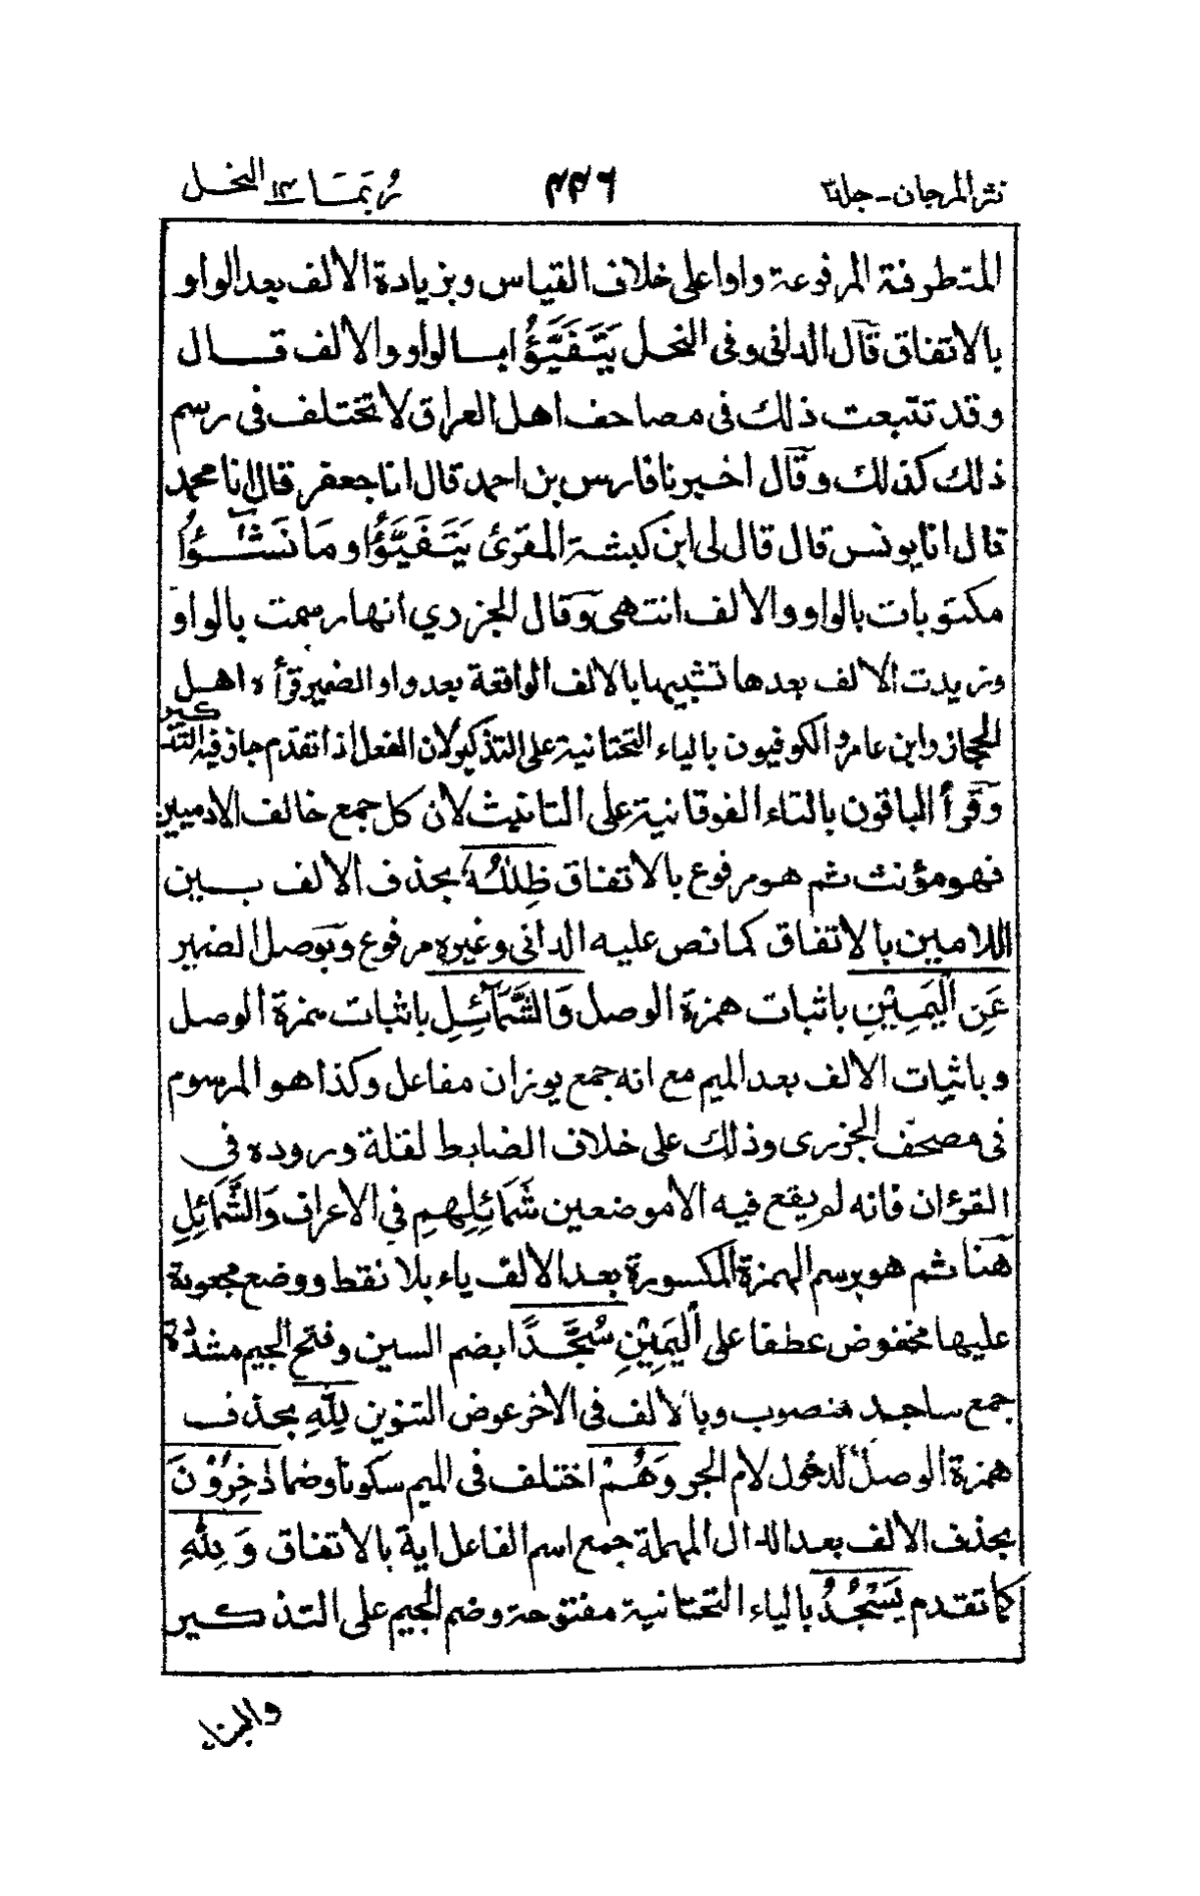 نثر المرجان - جلد ٣ ٤٤٦ رُبَمَا ١٤ النحل
المتطرفة المرفوعة واوا على خلاف القياس وبزيادة الالف بعد الواو
بالاتفاق قال الدانى وفى النحل يَتَفَيَّؤُا بالواو والالف قال
وقد تتبعت ذلك فى مصاحف اهل العراق لا تختلف فى رسم
ذلك كذلك وقال اخبرنا فارس بن احمد قال انا جعفر قال انا محمد
قال انا يونس قال قال لى ابن كبشة المقرئ يَتَفَيَّؤُا وما نَشٰٓؤُا
مكتوبات بالواو والالف انتهى وقال الجزري انها رسمت بالواو
وزيدت الالف بعدها تشبيها بالالف الواقعة بعد واو الضمير قرأه اهل
الحجاز وابن عامر والكوفيون بالياء التحتانية على التذكير لان الفعل اذا تقدم جاز فيه التذكير
وقرأ الباقون بالتاء الفوقانية على التانيث لان كل جمع خالف الادميين
فهو مؤنث ثم هو مرفوع بالاتفاق ظِلٰلُهٗ بحذف الالف بين
اللامين بالاتفاق كما نص عليه الدانى وغيره مرفوع وبوصل الضمير
عَنِ الْيَمِيْنِ باثبات همزة الوصل وَالشَّمَآئِلِ باثبات همزة الوصل
وباثبات الالف بعد الميم مع انه جمع يوزان مفاعل وكذا هو المرسوم
فى مصحف الجزرى وذلك على خلاف الضابط لقلة وروده فى
القرؤان فانه لم يقع فيه الا موضعين شَمَائِلِهِمِ في الاعراف وَالشَّمَائِلِ
هنا ثم هو برسم الهمزة المكسورة بعد الالف ياء بلا نقط ووضع مجعودة
عليها مخفوض عطفا على الْيَمِيْنِ سُجَّدًا بضم السين وفتح الجيم مشددة
جمع ساجد منصوب وبالالف فى الاخر عوض التنوين لِلّٰهِ بحذف
همزة الوصل لدخول لام الجر وَهُمْ اختلف فى الميم سكونا وضما دٰخِرُوْنَ
بحذف الالف بعد الدال المهملة جمع اسم الفاعل اية بالاتفاق وَلِلّٰهِ
كما تقدم يَسْجُدُ بالياء التحتانية مفتوحة وضم الجيم على التذكير
والبناء